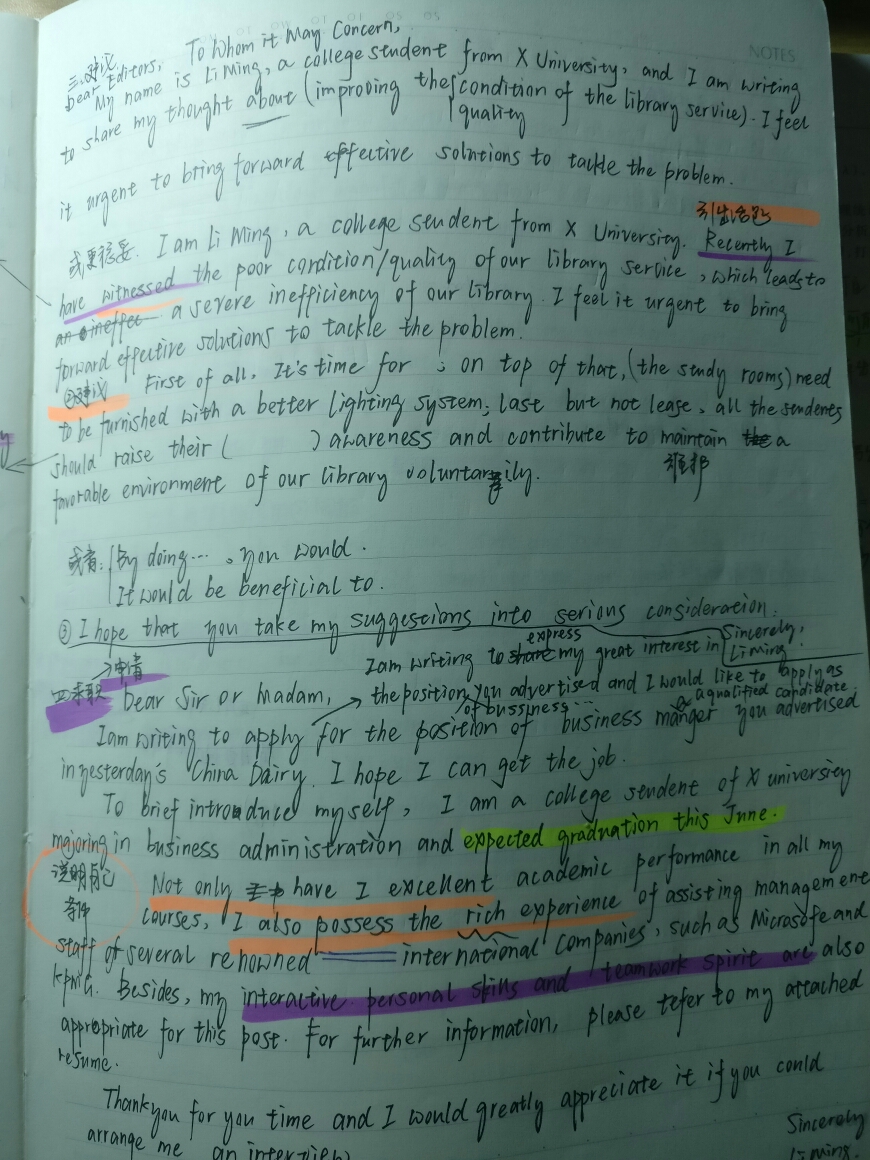 NOTES
三.建议
To Whom it May Concern,
Dear Editors,
My name is Li Ming, a college student from X University, and I am writing
to share my thought about (improving the condition of the library service). I feel
quality
it urgent to bring forward effective solutions to tackle the problem.
引出话题
或更稳妥. I am Li Ming, a college student from X University. Recently I
have witnessed the poor condition/quality of our library service, which leads to
a severe inefficiency of our library. I feel it urgent to bring
forward effective solutions to tackle the problem.
②建议 First of all, It's time for ; on top of that, (the study rooms) need
to be furnished with a better lighting system; last but not lease, all the students
should raise their ( ) awareness and contribute to maintain a
维护
favorable environment of our library voluntarily.
或者: By doing... , you would.
It would be beneficial to.
③ I hope that you take my suggestions into serious consideration.
Sincerely,
Li Ming
四求职 →申请
I am writing to share express my great interest in
Dear Sir or Madam, the position you advertised and I would like to apply as
of bussiness... a qualified candidate
I am writing to apply for the position of business manger you advertised
in yesterday's China Dairy. I hope I can get the job.
To brief introduce myself, I am a college student of X university
majoring in business administration and expected graduation this June.
说明自己
条件
Not only have I excellent academic performance in all my
courses, I also possess the rich experience of assisting management
staff of several renowned international companies, such as Microsofe and
kpmG. Besides, my interactive personal skills and teamwork spirit are also
appropriate for this post. For further information, please refer to my attached
resume.
Thank you for you time and I would greatly appreciate it if you could
arrange me an interview
Sincerely
Li Ming.